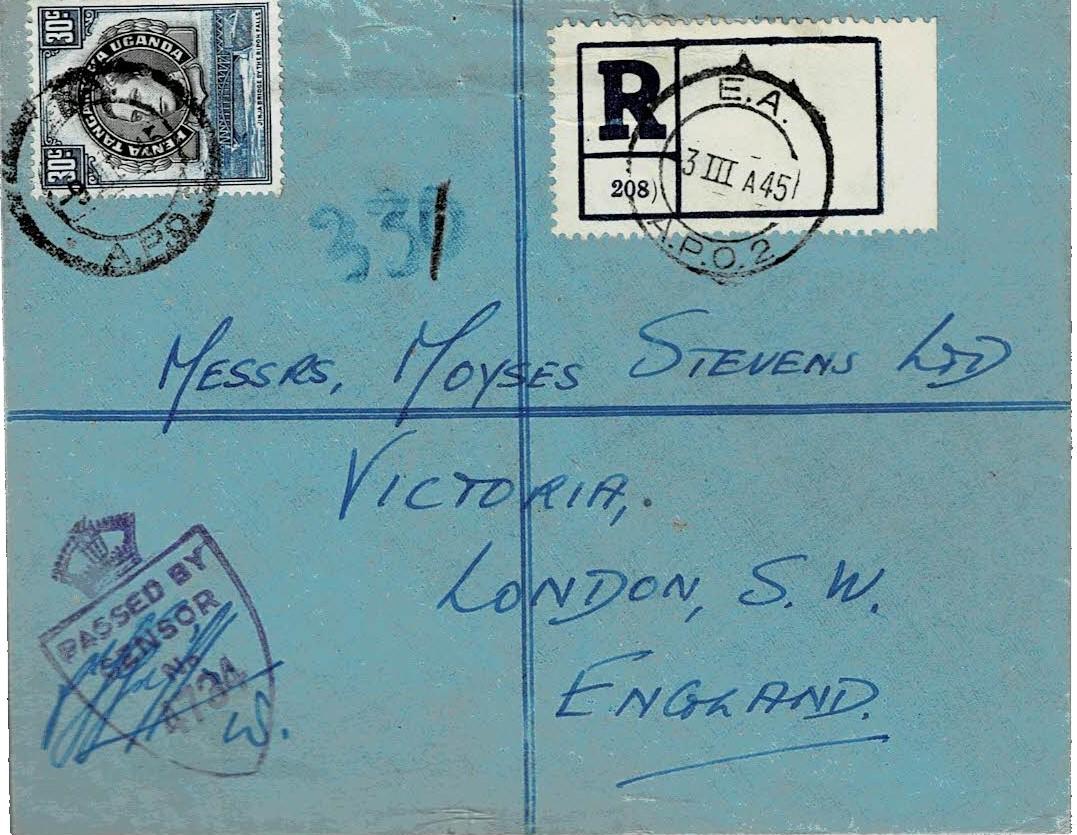 30c
30c
KENYA TANGANYIKA UGANDA
JINJA BRIDGE BY THE RIPON FALLS
A.P.O.
R
208)
E.A.
3 III A45
A.P.O.2
MESSRS, MOYSES STEVENS LTD
VICTORIA,
LONDON, S.W.
ENGLAND.
PASSED BY
CENSOR
No
W.